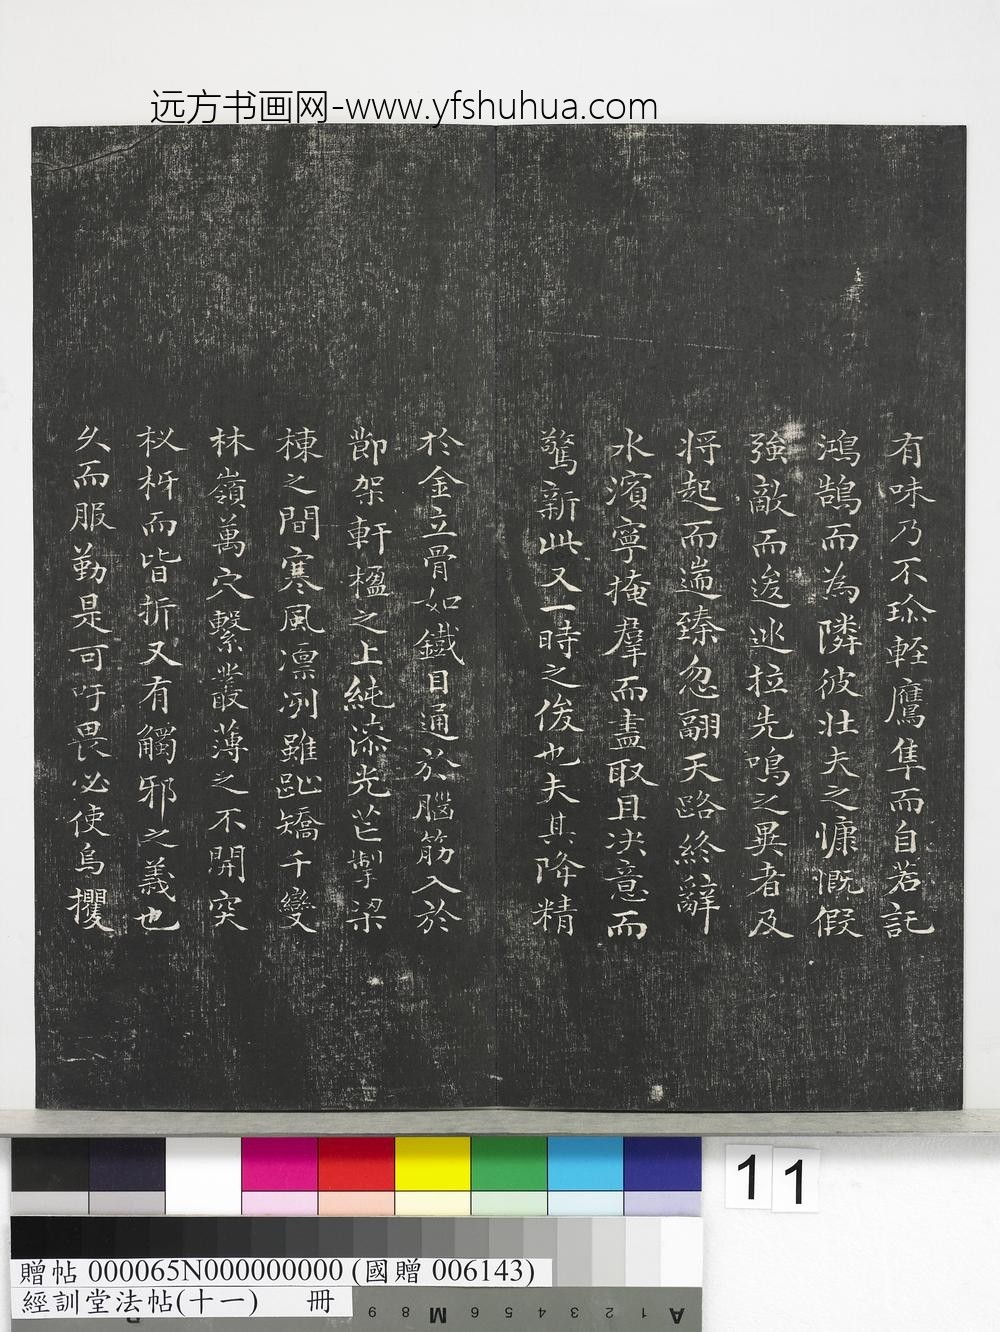 远方书画网-www.yfshuhua.com
有味乃不珎輕鷹隼而自若託
鴻鵠而為隣彼壯夫之慷慨假
強敵而逡巡拉先鳴之異者及
将起而遄臻忽翮天路終辭
水濱寧掩羣而盡取且决意而
驚新此又一時之俊也夫其降精
於金立骨如鐵目通於腦筋入於
節架軒楹之上純漆光芒掣梁
棟之間寒風凛冽雖趾矯千變
林嶺萬穴繫叢薄之不開突
杈枒而皆折又有觸邪之義也
久而服勤是可吁畏必使烏攫
11
贈帖 000065N000000000 (國贈 006143)
經訓堂法帖(十一) 冊
A 1 2 3 4 5 6 M 8 9